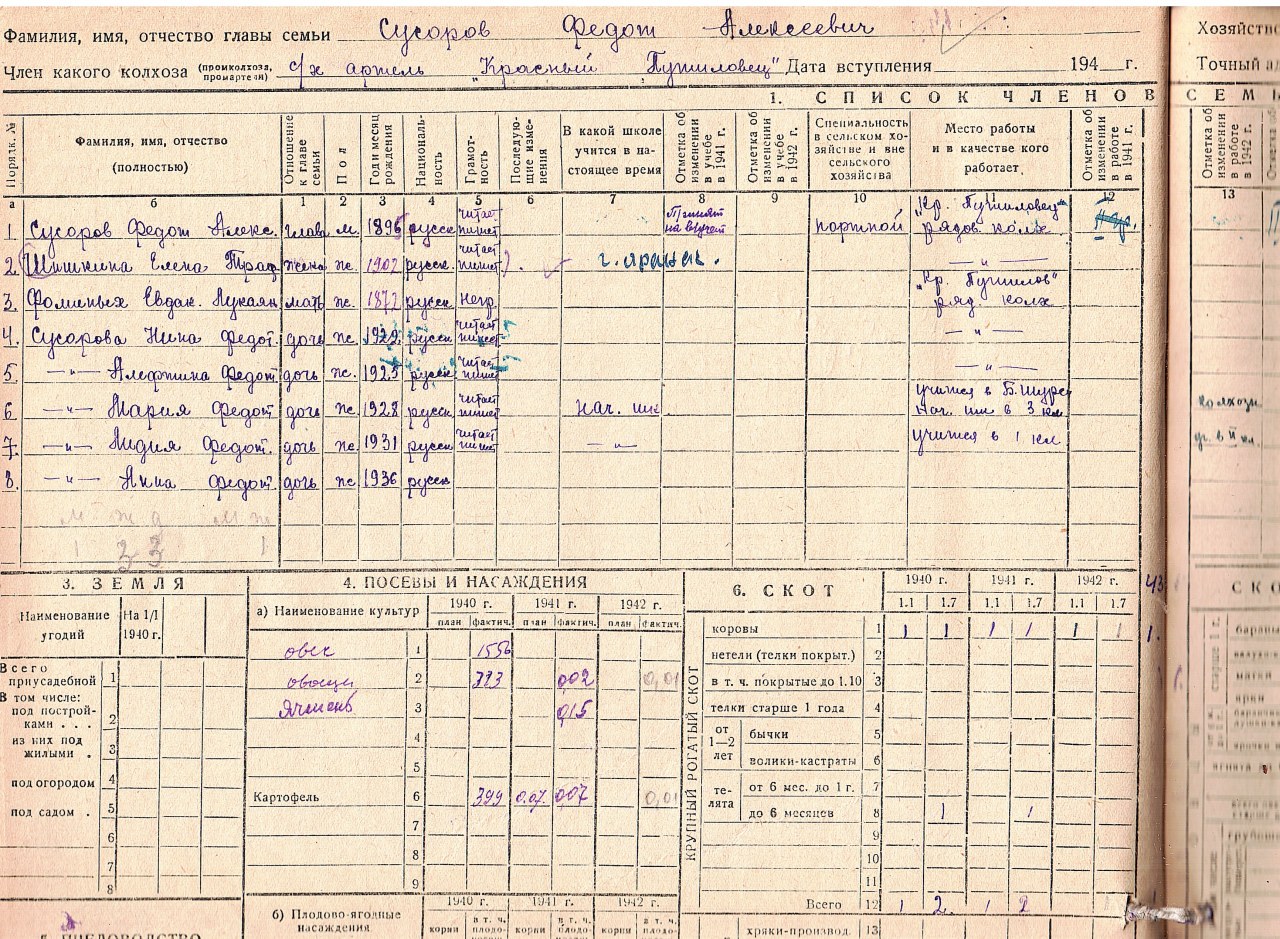 Фамилия, имя, отчество главы семьи Сусоров Федот Алексеевич
Член какого колхоза (промколхоза, промартели) с/х артель "Красный Путиловец" Дата вступления 194 г.
Хозяйство
Точный ад
1. СПИСОК ЧЛЕНОВ СЕМЬ
Порядк. № Фамилия, имя, отчество (полностью) Отношение к главе семьи Пол Год и месяц рождения Националь-ность Грамот-ность Последую-щие изме-нения В какой школе учится в на-стоящее время Отметка об изменении в учебе в 1941 г. Отметка об изменении в учебе в 1942 г. Специальность в сельском хо-зяйстве и вне сельского хозяйства Место работы и в качестве кого работает Отметка об изменении в работе в 1941 г. Отметка об изменении в работе в 1942 г.
а б 1 2 3 4 5 6 7 8 9 10 11 12 13
1 Сусоров Федот Алекс. глава м. 1896 русск читает пишет портной "Кр. Путиловец" рядов. колх
2. Шишкина Елена Траф жена ж. 1902 русск читает пишет г. — " —
3. Фоминых Евдак. Лукаян мать ж. 1872 русск негр. "Кр. Путилов" ряд. колх
4. Сусорова Нина Федот. дочь ж 1922 русск читает пишет — " —
5 — " — Алефтина Федот дочь ж. 1925 русск читает пишет — " —
6 — " — Мария Федот дочь ж 1928 русск читает пишет нач. шк учится в Б. Шурс нач. шк в 3 кл колхозн
7. — " — Лидия Федот. дочь ж. 1931 русск читает пишет — " — учится в 1 кл уч. в II кл.
8. — " — Анна Федот. дочь ж 1936 русск
м ж д м ж
1 3 3 1
3. ЗЕМЛЯ
Наименование угодий На 1/I 1940 г.
Всего приусадебной 1
В том числе:
под построй-ками . . . 2
из них под жилыми . 3
под огородом 4
под садом . 5
6
7
8
4. ПОСЕВЫ И НАСАЖДЕНИЯ
а) Наименование культур 1940 г. 1941 г. 1942 г.
план фактич. план фактич. план фактич.
овес 1 1556
овощи 2 393 0,02 0,01
Ячмень 3 0,15
4
5
Картофель 6 399 0.07 0,07 0,01
7
8
9
б) Плодово-ягодные насаждения 1940 г. 1941 г. 1942 г.
корни в т. ч. плодо- корни в т. ч. плодо- корни в т. ч. плодо-
6. СКОТ
1940 г. 1941 г. 1942 г. 43
1.1 1.7 1.1 1.7 1.1 1.7
КРУПНЫЙ РОГАТЫЙ СКОТ
коровы 1 1 1 1 1 1 1 1.
нетели (телки покрыт.) 2
в т. ч. покрытые до 1.10 3
телки старше 1 года 4
от 1—2 лет бычки 5
волики-кастраты 6
те-лята от 6 мес. до 1 г. 7
до 6 месяцев 8 1 1
9
10
11
Всего 12 1 2. 1 2 1
хряки-производ. 13
СКО
старше 1 г.
матки
ярки
5. ПЧЕЛОВОДСТВО